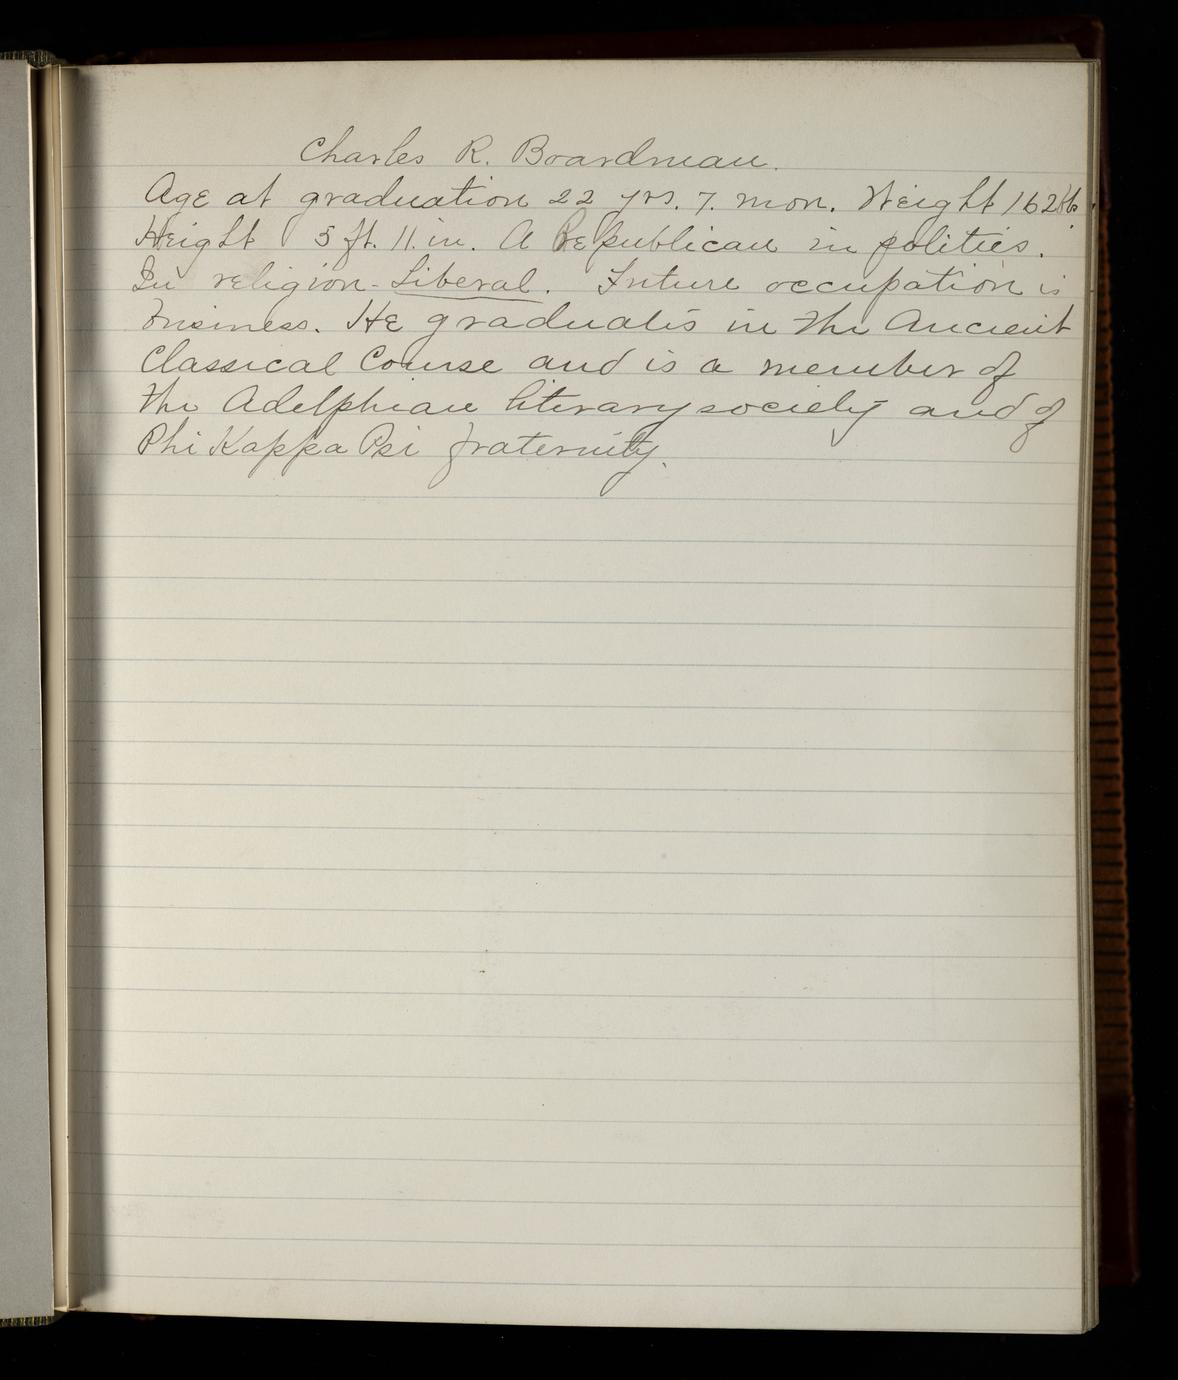 Charles R. Boardman.
Age at graduation 22 yrs. 7. mon. Weight 162 lbs.
Height 5 ft. 11. in. A Republican in politics.
In religion - Liberal. Future occupation is
business. He graduates in the Ancient
Classical Course and is a member of
the Adelphian literary society and of
Phi Kappa Psi fraternity.